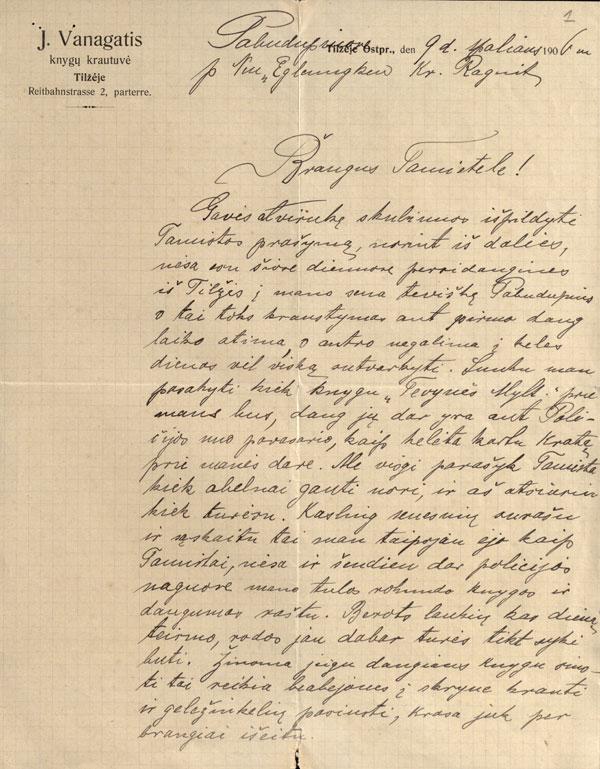 1
J. Vanagatis
knygų krautuvė
Tilžėje
Reitbahnstrasse 2, parterre.
Tilžėje Ostpr., den 9 d. 1906 m
p Egleningken Kr. Ragnit
Brangus Tamistele!
Gavęs atvirukę skubinuos išpildyti
Tamistos prašymą, norint iš dalies,
nesa esu šiose dienose persidanginęs
iš Tilžės į mano sena teviškę
o tai toks kraustymas ant pirmo daug
laiko atima o antro negalima į keles
dienas vil viską sutvarkyti. Sunku man
pasakyti kiek knygu „Tevynės Mylt.“ prie
manę bus, daug jų dar yra ant Poli-
cijos nuo pavasario, kaip keleta kartu Kratą
prie manęs darė. Ale visgi parašyk Tamista
kiek abelnai gauti nori, ir aš atsiusiu
kiek turėsu. Kasling senesnių surašu
ir sąskaitu tai man taipojau ejo kaip
Tamistai, nesa ir šendien dar policijos
naguose mano tulos rokundo knygos ir
daugumas raštu. Berots laukiu kas dieną
teismo, rodos jau dabar turės tikt syki
buti. Žinoma jeigu daugiaus knygu sius-
ti tai reikia beabejonės į skrynę krauti
ir geležinkelių pasiusti, krasa juk per
brangiai išeitu.